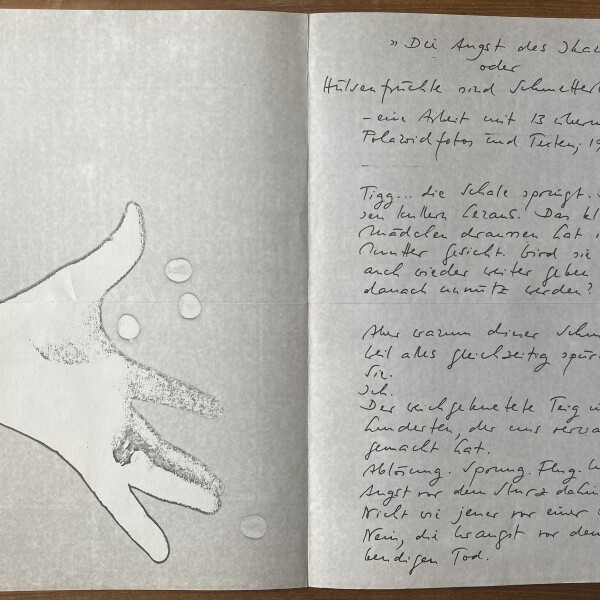 » Die Angst des Ika
oder
Hülsenfrüchte sind Schmetter
– eine Arbeit mit 13 überm
Polaroidfotos und Texten; 19
Tigg... die Schale springt.
sen kullern heraus. Das kl
Mädchen draussen hat
Mutter Gesicht. Wird sie
auch wieder weiter geben
danach unnütz werden?
Aber warum dieser Schm
Weil alles gleichzeitig spür
Sie.
Ich.
Der weichgeknetete Teig
hunderten, der uns
gemacht hat.
Ablösung. Sprung. Flug.
Angst vor dem Sturz dahin
Nicht wie jener vor einer
Nein, die Urangst vor dem
bendigen Tod.